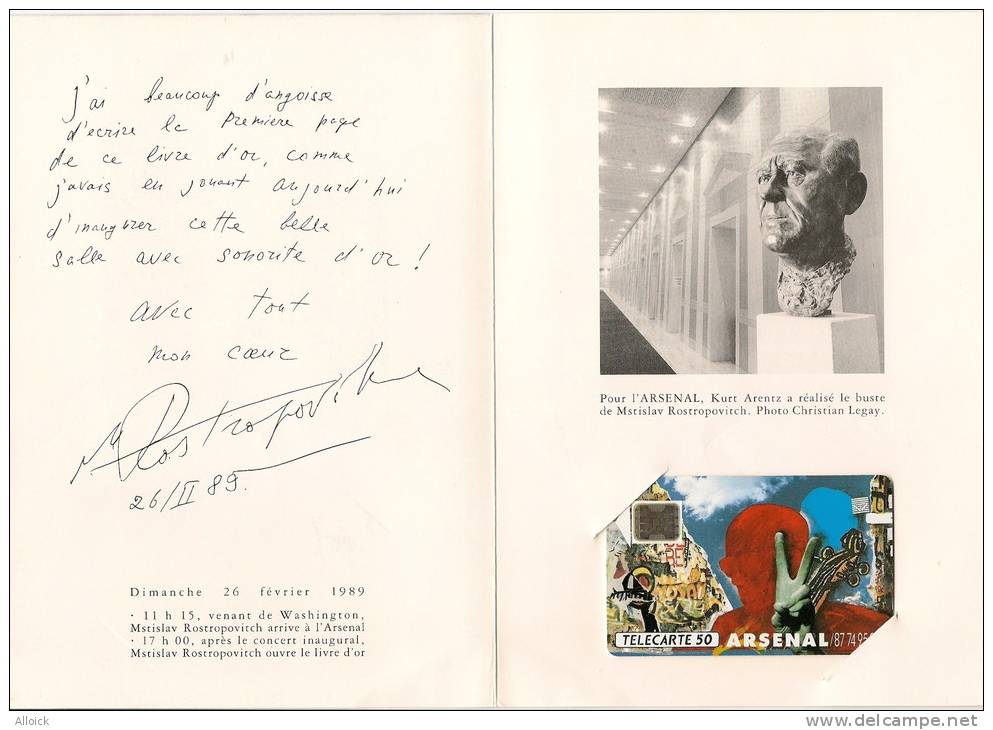 j'ai beaucoup d'angoisse
d'ecrire la premiere page
de ce livre d'or, comme
j'avais en jouant aujourd'hui
d'inaugurer cette belle
salle avec sonorite d'or !
avec tout
mon cœur
M. Rostropovitch
26/II 89.
Dimanche 26 février 1989
· 11 h 15, venant de Washington,
Mstislav Rostropovitch arrive à l'Arsenal
· 17 h 00, après le concert inaugural,
Mstislav Rostropovitch ouvre le livre d'or
Pour l'ARSENAL, Kurt Arentz a réalisé le buste
de Mstislav Rostropovitch. Photo Christian Legay.
TELECARTE 50 ARSENAL/87 74 95
Alloick
www.delcampe.net